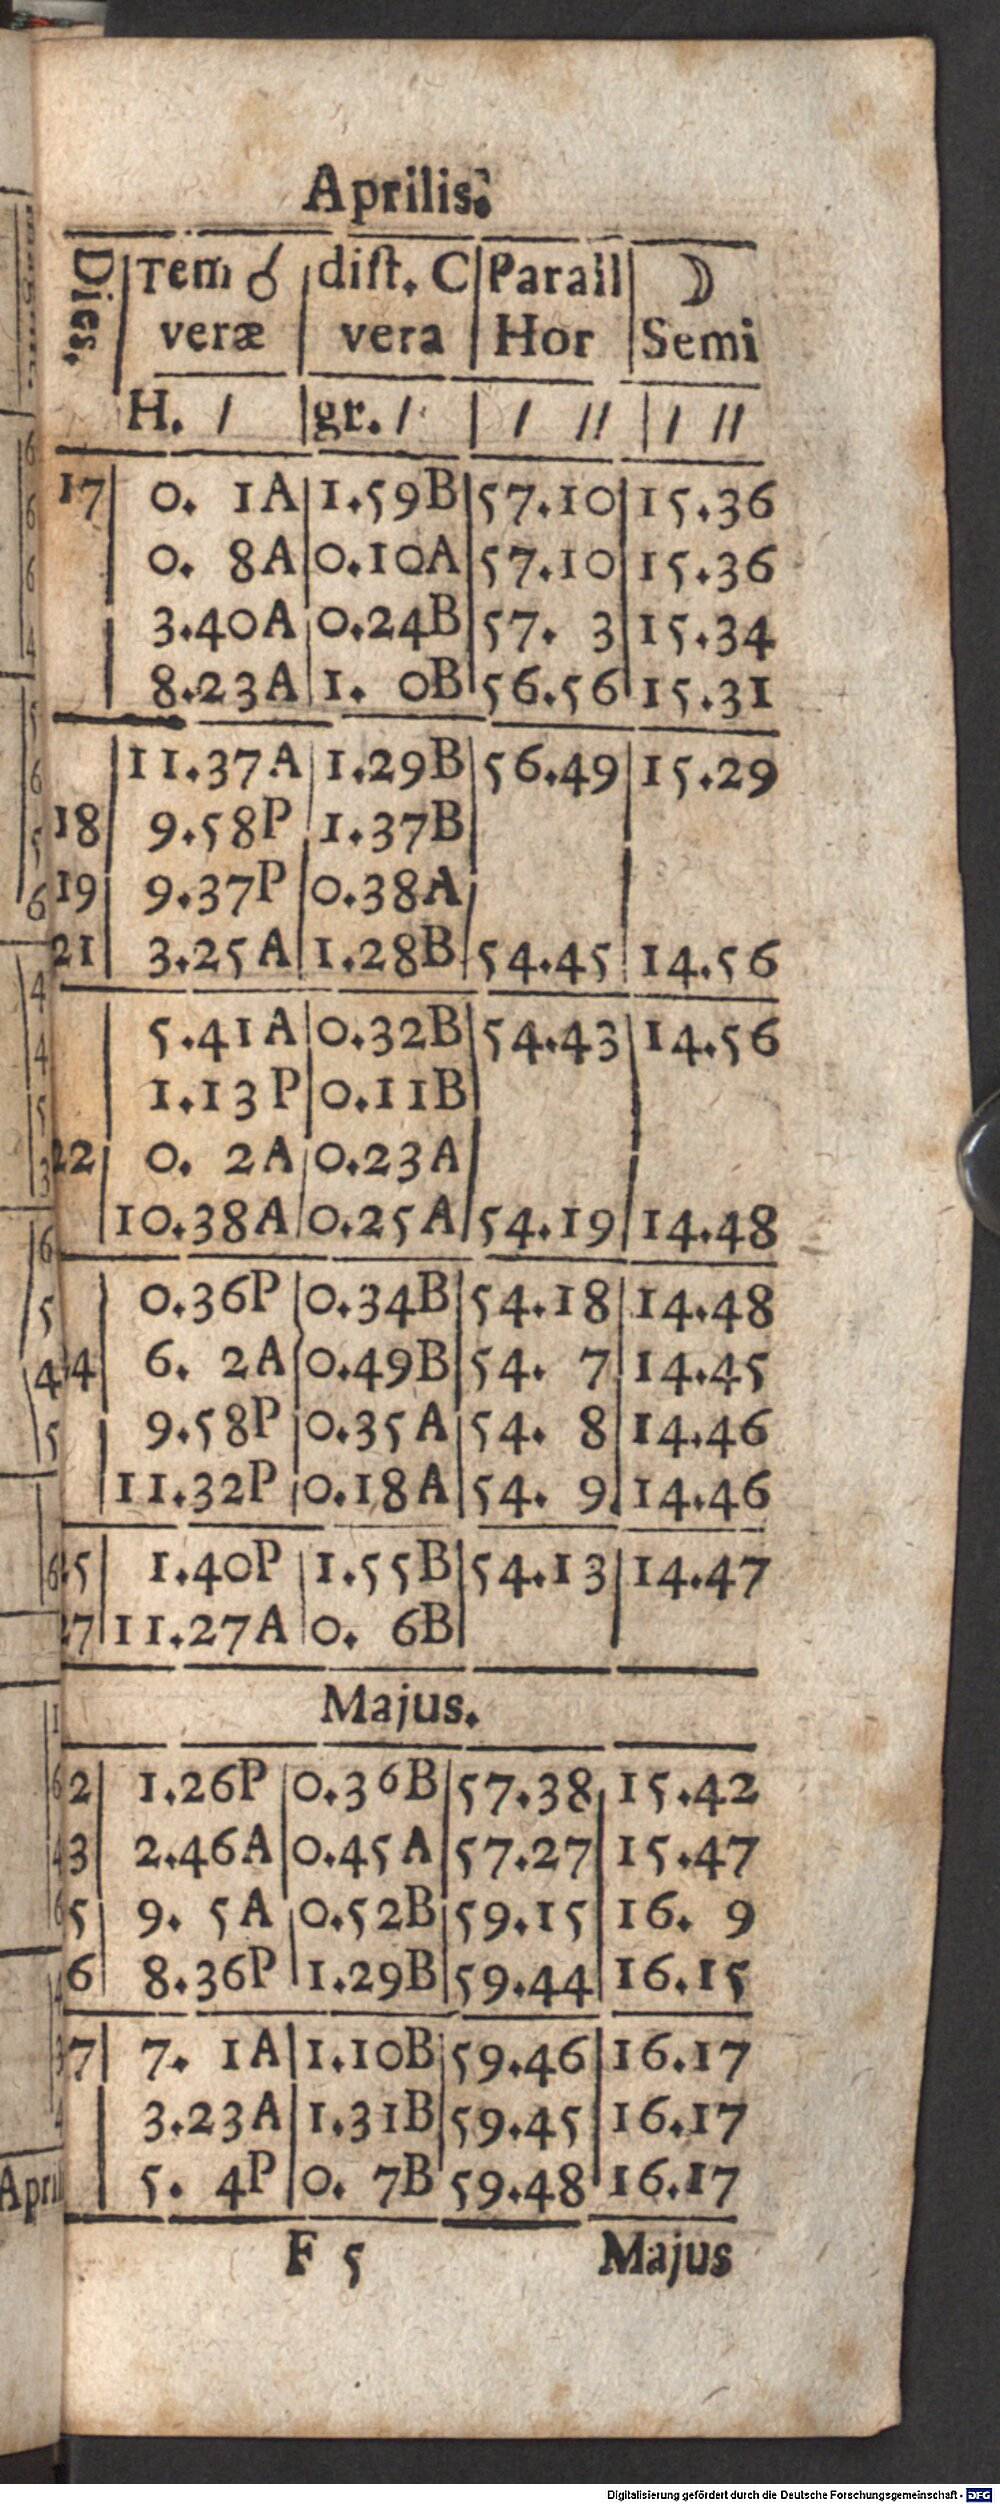 Aprilis.
Dies. Tem ☌ dist. C Parall ☽
veræ vera Hor Semi
H. / gr. / / // / //
17 0. 1A 1.59B 57.10 15.36
0. 8A 0.10A 57.10 15.36
3.40A 0.24B 57. 3 15.34
8.23A 1. 0B 56.56 15.31
11.37A 1.29B 56.49 15.29
18 9.58P 1.37B
19 9.37P 0.38A
21 3.25A 1.28B 54.45 14.56
5.41A 0.32B 54.43 14.56
1.13P 0.11B
22 0. 2A 0.23A
10.38A 0.25A 54.19 14.48
0.36P 0.34B 54.18 14.48
4 6. 2A 0.49B 54. 7 14.45
9.58P 0.35A 54. 8 14.46
11.32P 0.18A 54. 9 14.46
5 1.40P 1.55B 54.13 14.47
7 11.27A 0. 6B
Majus.
2 1.26P 0.36B 57.38 15.42
3 2.46A 0.45A 57.27 15.47
5 9. 5A 0.52B 59.15 16. 9
6 8.36P 1.29B 59.44 16.15
7 7. 1A 1.10B 59.46 16.17
3.23A 1.31B 59.45 16.17
5. 4P 0. 7B 59.48 16.17
F 5 Majus
Digitalisierung gefördert durch die Deutsche Forschungsgemeinschaft - DFG